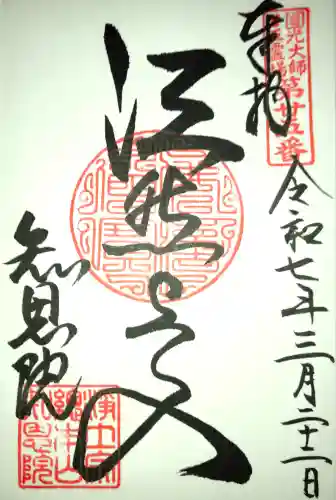 圓光大師
霊場第廿五番
奉拝
令和七年三月二十二日
法然上人
知恩院
浄土宗
總本山
知恩院